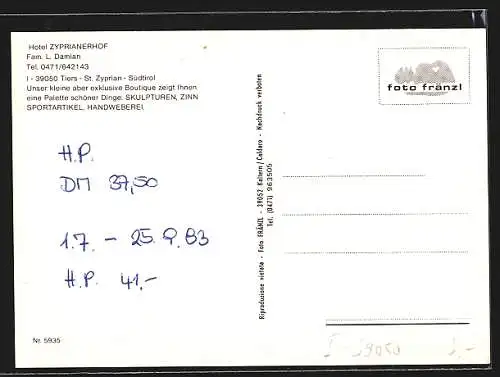 Hotel ZYPRIANERHOF
Fam. L. Damian
Tel. 0471/642143
I - 39050 Tiers - St. Zyprian - Südtirol
Unser kleine aber exklusive Boutique zeigt Ihnen
eine Palette schöner Dinge: SKULPTUREN, ZINN
SPORTARTIKEL, HANDWEBEREI
H.P.
DM 37,50
1.7. - 25.9.83
H.P. 41,-
Nr. 5935
Riproduzione vietata - Foto FRÄNZL - 39052 Kaltern/Caldaro - Nachdruck verboten
Tel. (0471) 963505
foto fränzl
I - 39050